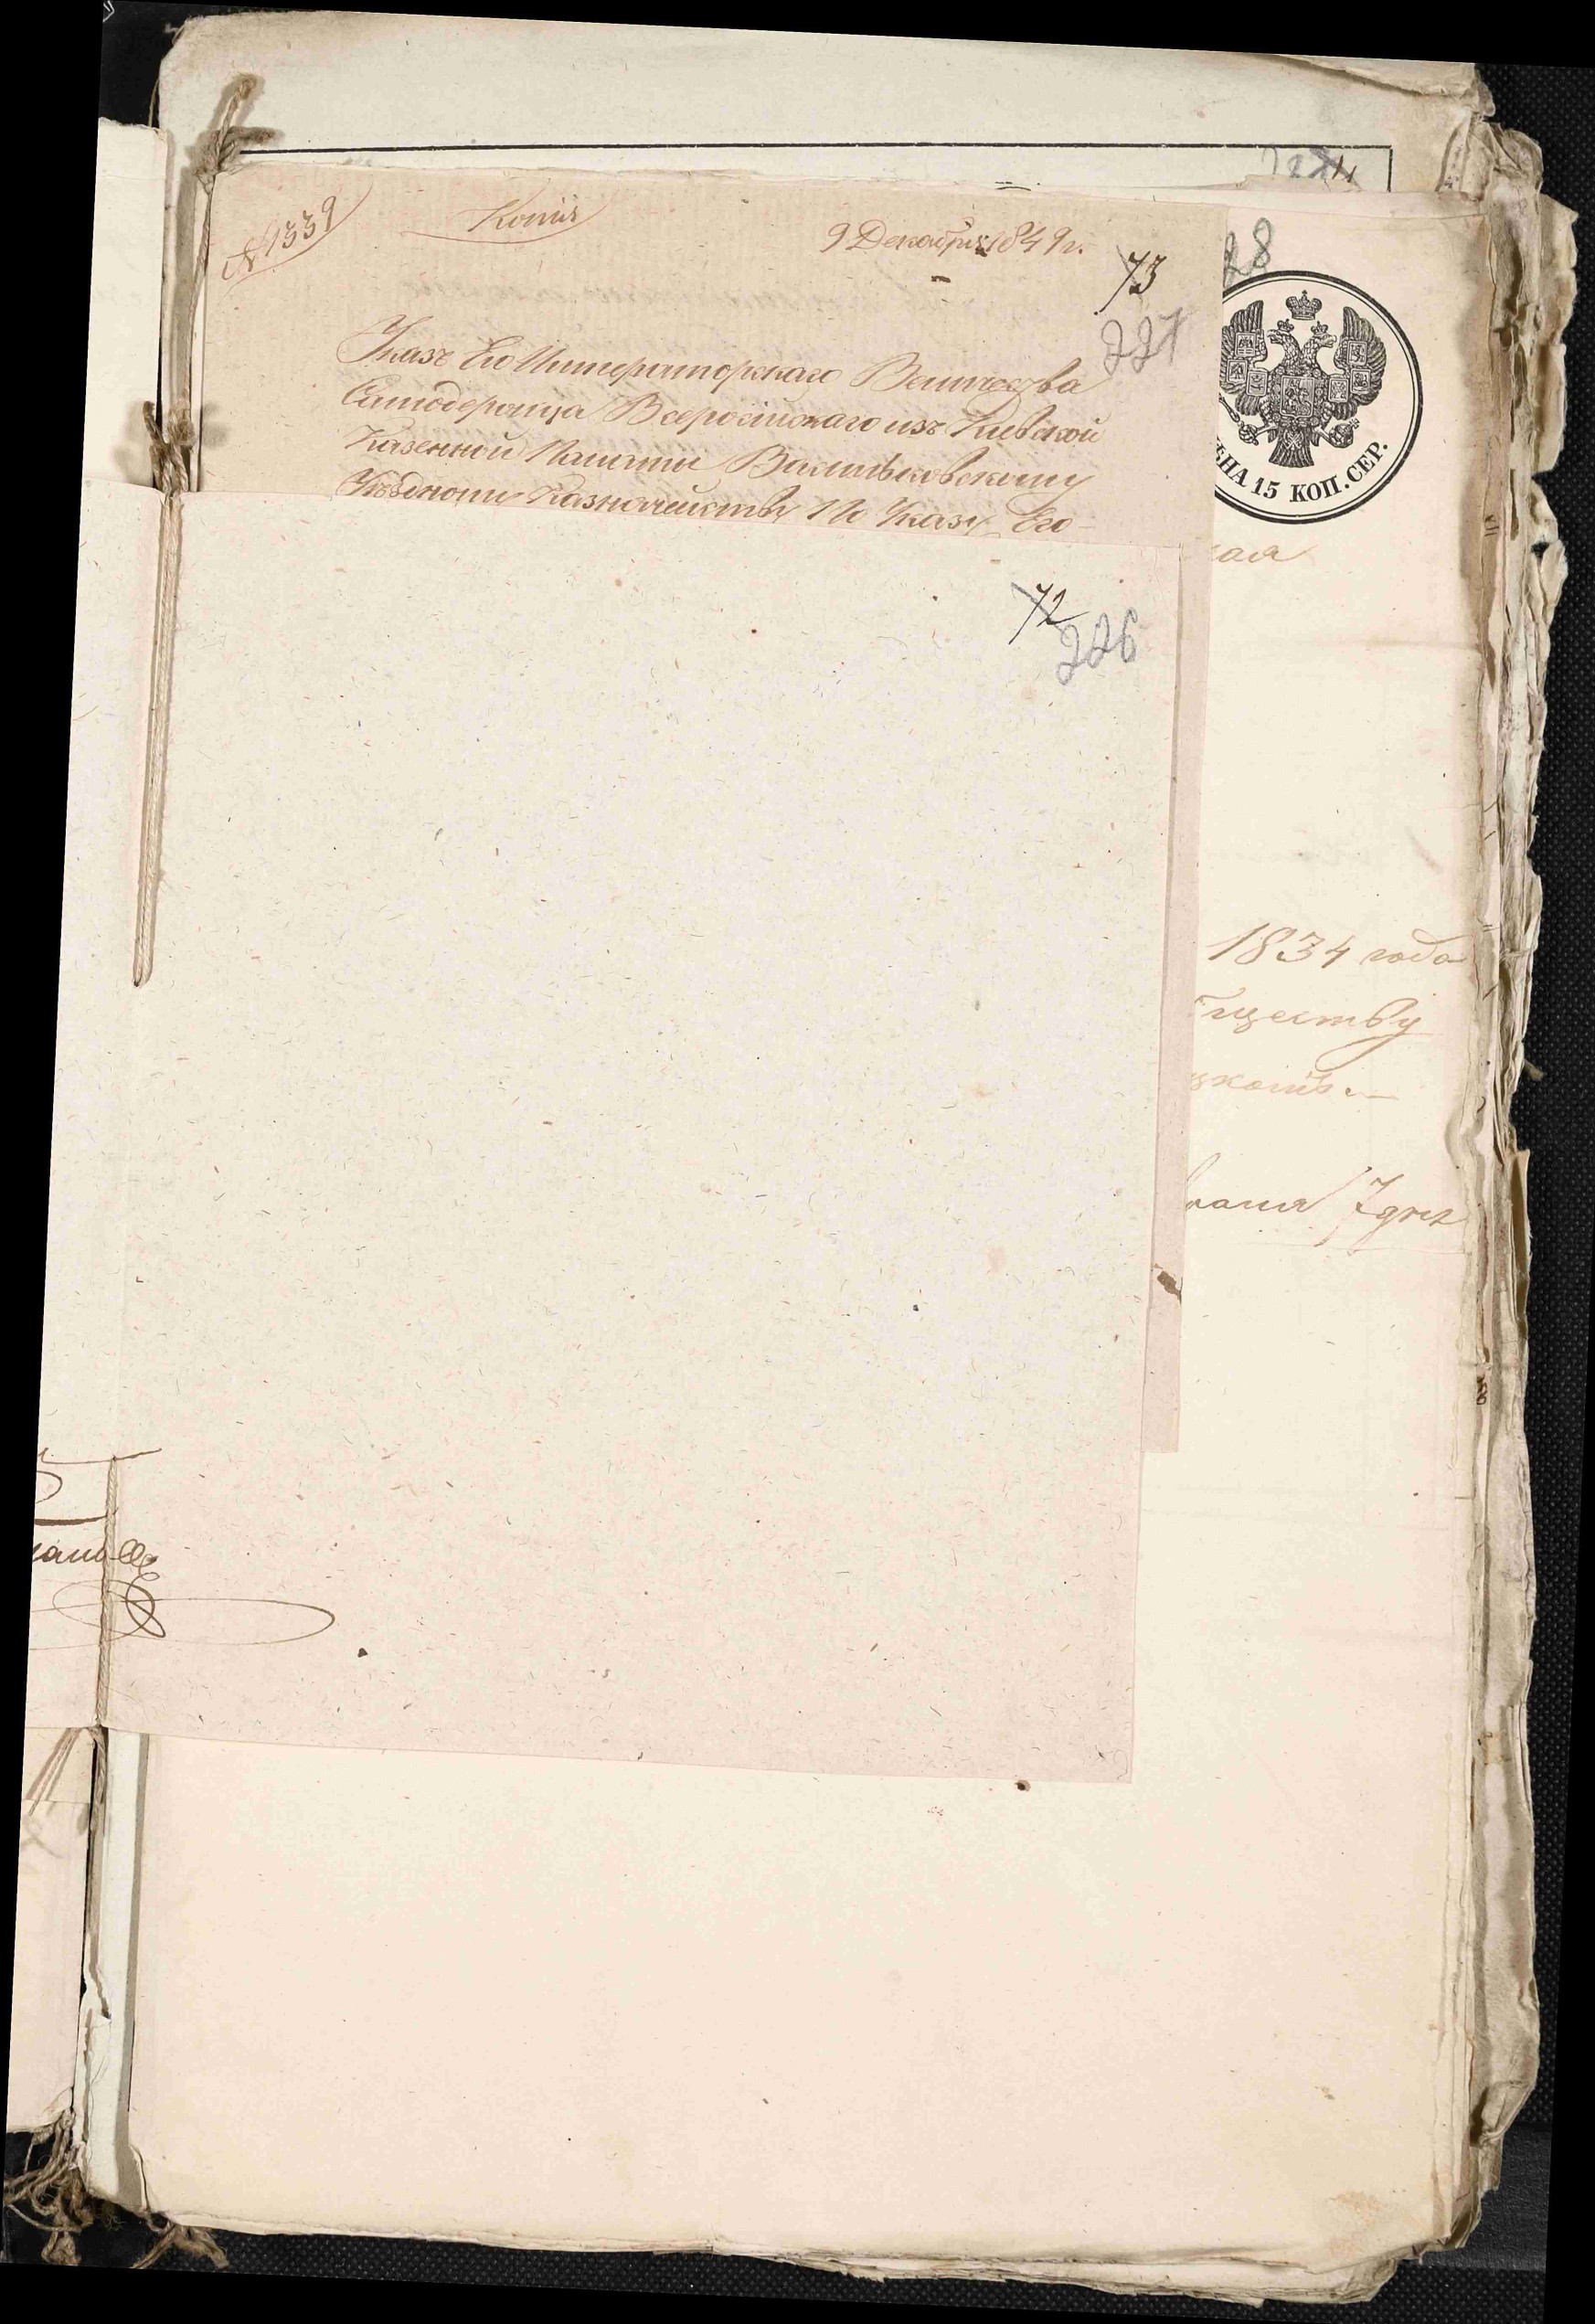 № 1339
Копія
9 Декабря 1849 г.
73
227
Указъ Его Императорскаго Величества
Самодержца Всеросійскаго изъ Кіевской
Казенной Палаты Васильковскому
Уѣздному Казначейству По Указу Его
72
226
28
ѢНА 15 КОП. СЕР.
1834 года
ществу